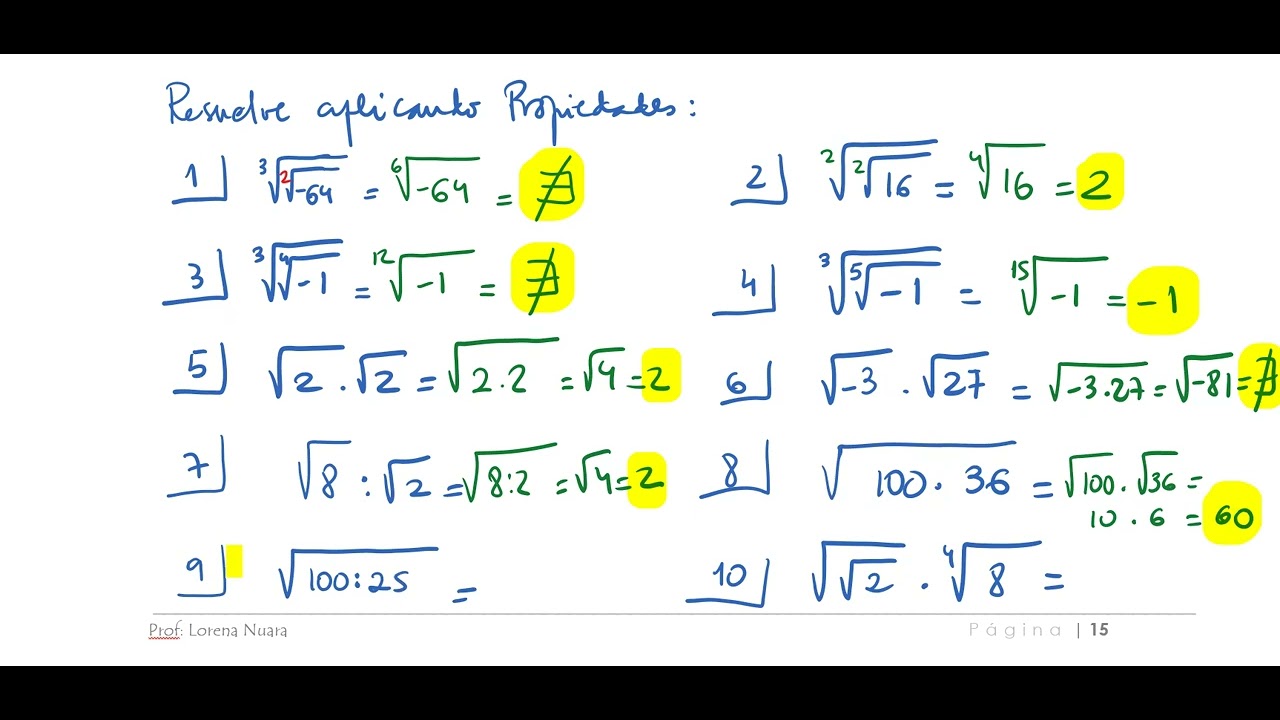 Resuelve aplicando Propiedades:
1 ∛(²√-64) = ⁶√-64 = ∄
2 ²√(²√16) = ⁴√16 = 2
3 ∛(⁴√-1) = ¹²√-1 = ∄
4 ∛(⁵√-1) = ¹⁵√-1 = -1
5 √2 . √2 = √2.2 = √4 = 2
6 √-3 . √27 = √-3.27 = √-81 = ∄
7 √8 : √2 = √8:2 = √4 = 2
8 √100.36 = √100 . √36 =
10 . 6 = 60
9 √100:25 =
10 √√2 . ⁴√8 =
Prof: Lorena Nuara
Página | 15